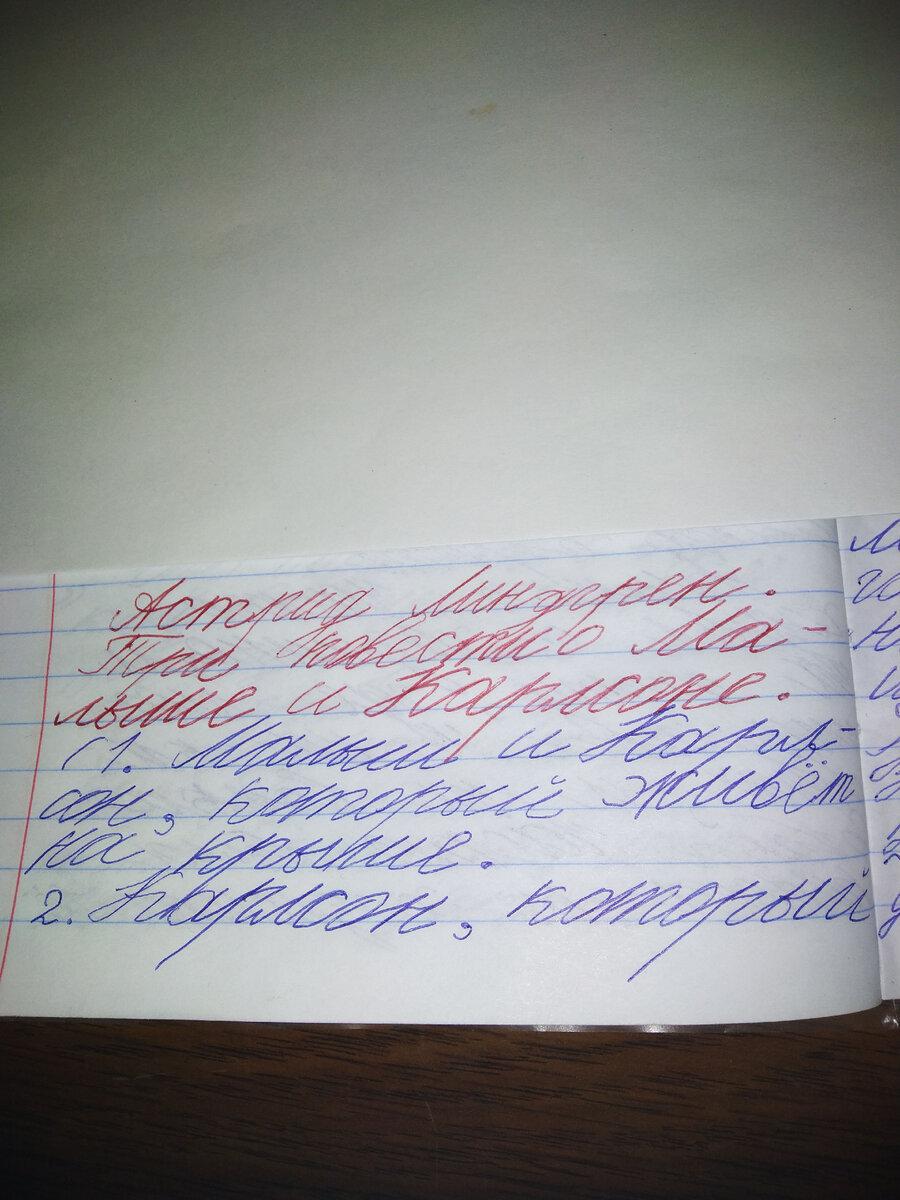 Астрид Линдгрен.
Три повести о Ма-
лыше и Карлсоне.
1. Малыш и Карл-
сон, который живёт
на крыше.
2. Карлсон, который